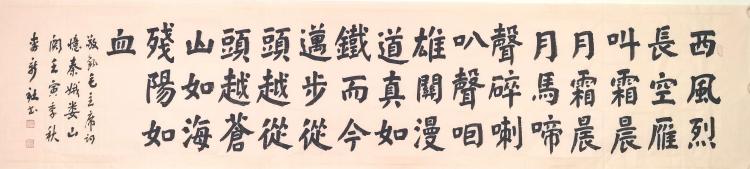 西風烈
長空雁
叫霜晨
月霜晨
月馬啼
聲碎喇
叭聲咽
雄關漫
道真如
鐵而今
邁步從
頭越從
頭越蒼
山如海
殘陽如
血
敬錄毛主席詞
憶秦娥娄山
関壬寅季秋
李新社书